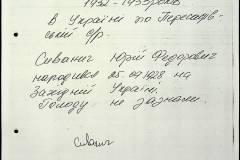 1932-1933 років
В Україні по Пересадів-
ській с/р.
Сиванич Юрій Федорович
народився 25.09.1928 на
Західній Україні.
Голоду не зазнали.
Сиванич